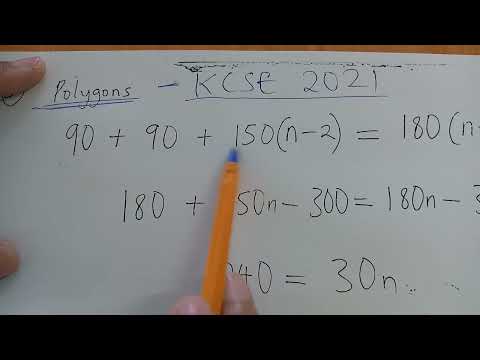 Polygons - KCSE 2021
90 + 90 + 150(n-2) = 180(n-
180 + 50n - 300 = 180n - 3
40 = 30n